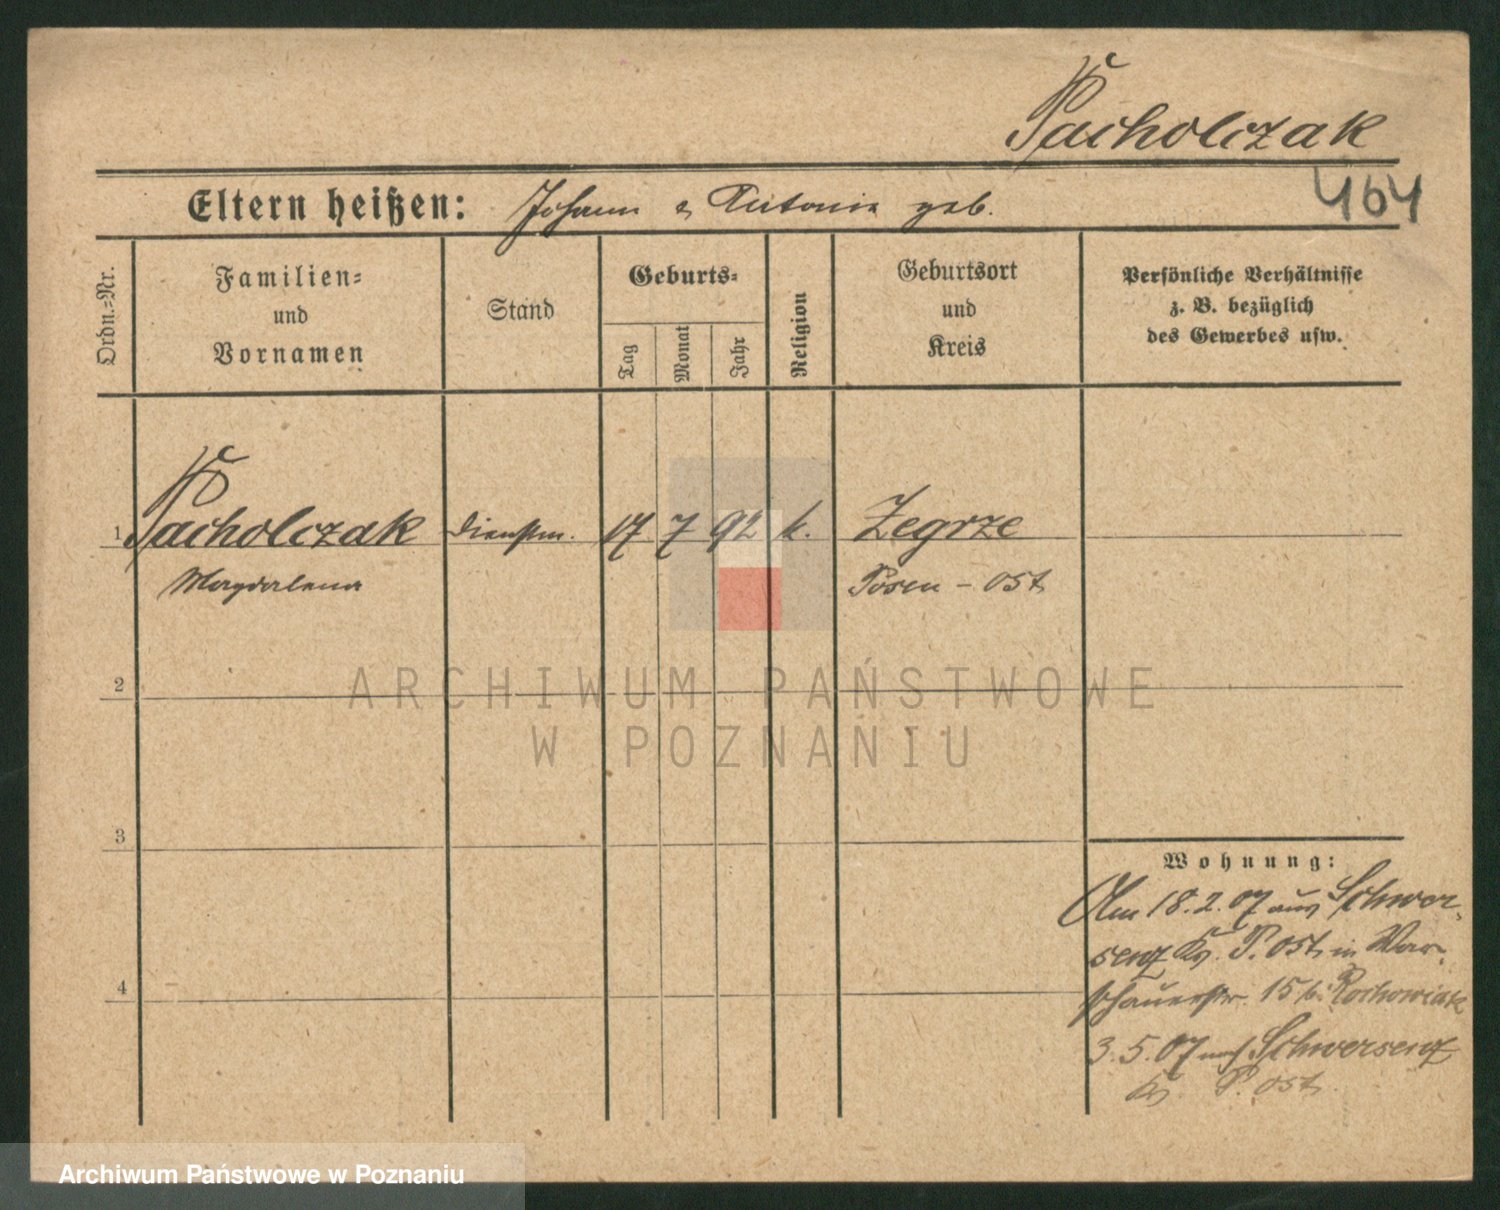 Pacholczak
Eltern heißen: Johann & Antonie geb.
464
Ordn.=Nr.
Familien=
und
Vornamen
Stand
Geburts=
Tag
Monat
Jahr
Religion
Geburtsort
und
Kreis
Persönliche Verhältnisse
z. B. bezüglich
des Gewerbes usw.
1 Pacholczak Dienstm. 17 7 92 k. Zegrze
Magdalena Posen - Ost
2
ARCHIWUM PAŃSTWOWE
W POZNANIU
3
Wohnung:
Am 18.2.07 aus Schwer-
senz Kr. P. Ost in War-
4
schauerstr. 15 b. Rochowiak
3.5.07 nach Schwersenz
Kr. P. Ost.
Archiwum Państwowe w Poznaniu